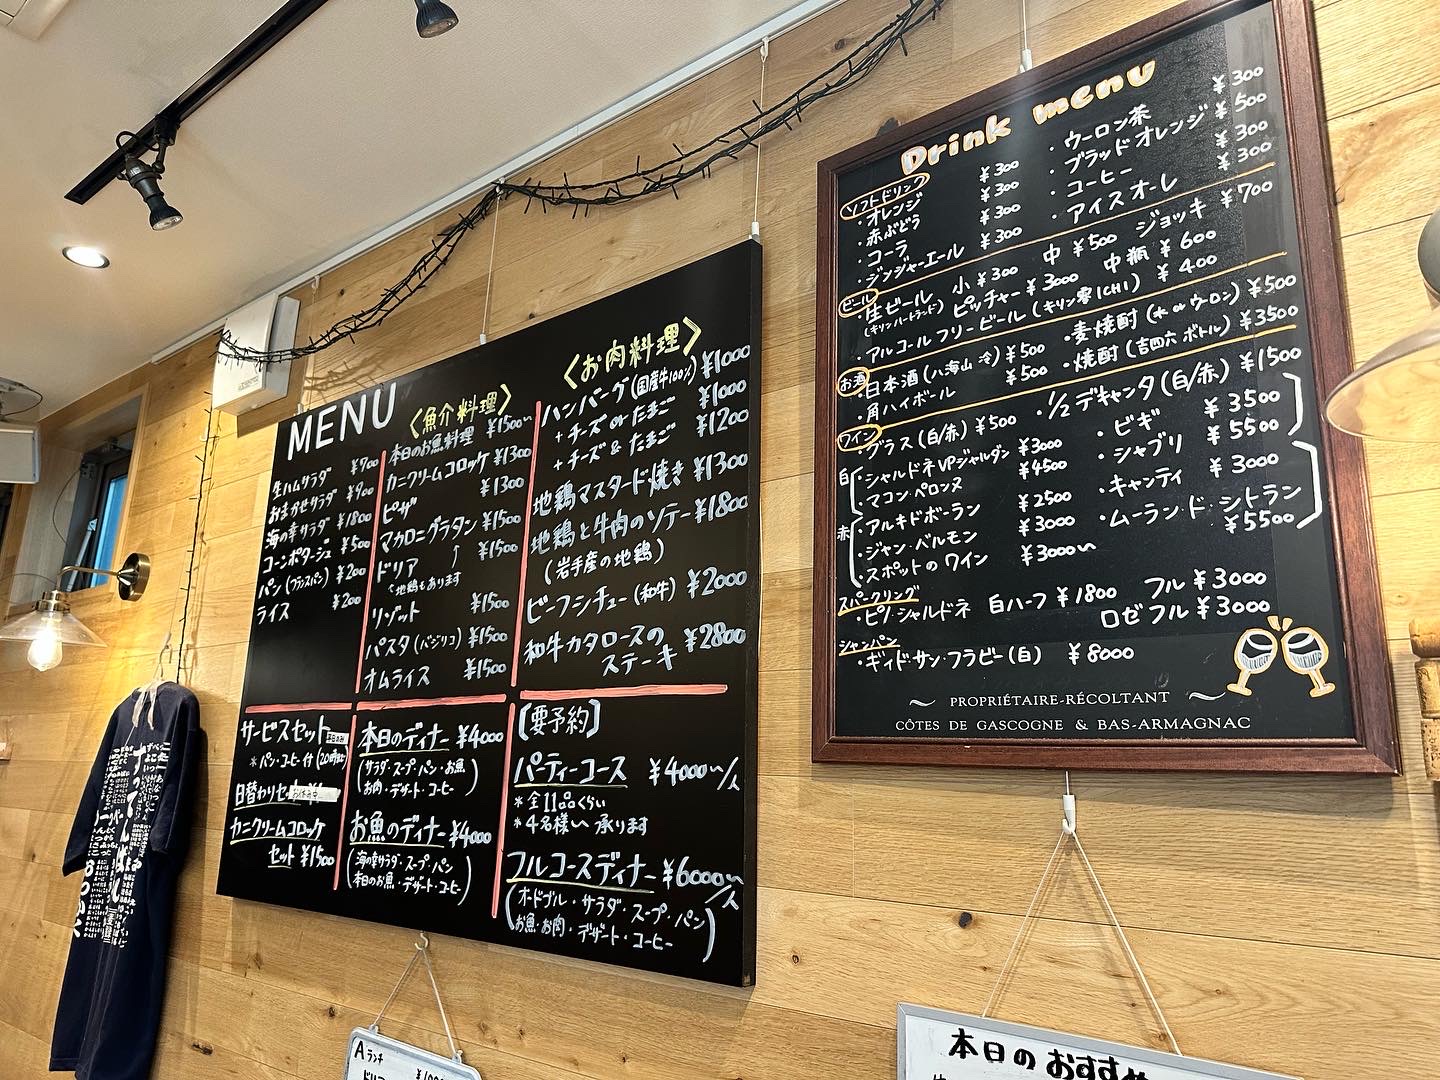 MENU
生ハムサラダ ¥700
おまかせサラダ ¥900
海の幸サラダ ¥1800
コーンポタージュ ¥500
パン(フランスパン) ¥200
ライス ¥200
〈魚介料理〉
本日のお魚料理 ¥1500〜
カニクリームコロッケ ¥1300
ピザ ¥1300
マカロニグラタン ¥1500
ドリア ¥1500
地鶏もあります
リゾット ¥1500
パスタ(バジリコ) ¥1500
オムライス ¥1500
〈お肉料理〉
ハンバーグ(国産牛100%) ¥1000
+チーズ or たまご ¥1000
+チーズ & たまご ¥1200
地鶏マスタード焼き ¥1300
地鶏と牛肉のソテー ¥1800
(岩手産の地鶏)
ビーフシチュー(和牛) ¥2000
和牛カタロースの
ステーキ ¥2800
サービスセット
*パン・コーヒー付
日替わりセット
カニクリームコロッケ
セット ¥1500
本日のディナー ¥4000
(サラダ・スープ・パン・お魚
お肉・デザート・コーヒー)
お魚のディナー ¥4000
(海の幸サラダ・スープ・パン
本日のお魚・デザート・コーヒー)
[要予約]
パーティーコース ¥4000〜/人
*全11品くらい
*4名様〜承ります
フルコースディナー ¥6000〜/人
(オードブル・サラダ・スープ・パン
お魚・お肉・デザート・コーヒー)
Drink menu
ソフトドリンク
・オレンジ ¥300 ・ウーロン茶 ¥300
・赤ぶどう ¥300 ・ブラッドオレンジ ¥500
・コーラ ¥300 ・コーヒー ¥300
・ジンジャーエール ¥300 ・アイスオーレ ¥300
ビール
・生ビール 小 ¥300 中 ¥500 ジョッキ ¥700
(キリンハートランド) ピッチャー ¥3000 中瓶 ¥600
・アルコールフリービール(キリン零ICHI) ¥400
お酒
・日本酒(八海山 冷) ¥500 ・麦焼酎(水orウーロン) ¥500
・角ハイボール ¥500 ・焼酎(吉四六 ボトル) ¥3500
ワイン
・グラス(白/赤) ¥500 ・1/2デキャンタ(白/赤) ¥1500
白
・シャルドネVPジャルダン ¥3000 ・ビギ ¥3500
・マコン・ペロンヌ ¥4500 ・シャブリ ¥5500
赤
・アルキドボーラン ¥2500 ・キャンティ ¥3000
・ジャン・バルモン ¥3000 ・ムーラン・ド・シトラン ¥5500
・スポットのワイン ¥3000〜
スパークリング
・ピノ・シャルドネ 白ハーフ ¥1800 フル ¥3000
ロゼフル ¥3000
シャンパン
・ギィド・サン・フラビー(白) ¥8000
PROPRIÉTAIRE-RÉCOLTANT
CÔTES DE GASCOGNE & BAS-ARMAGNAC
Aランチ
本日のおすすめ